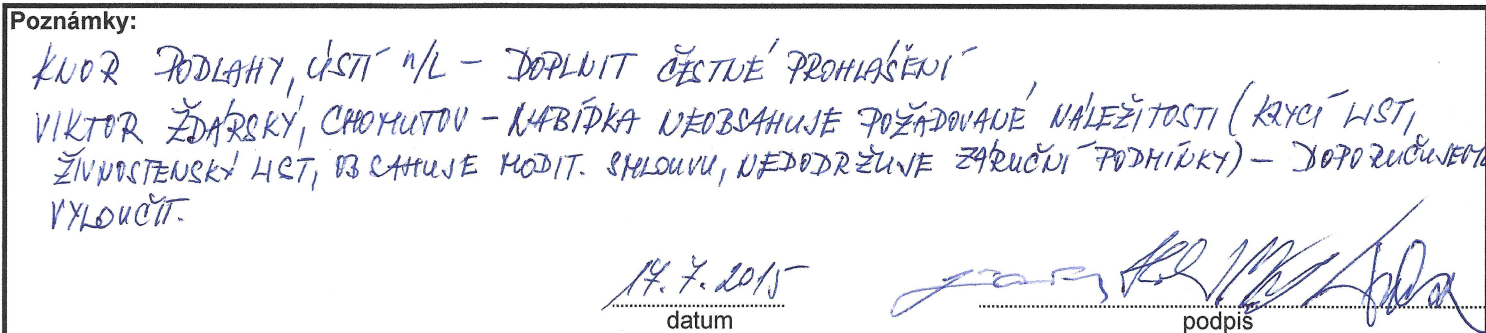 Poznámky:
KNOR PODLAHY, ÚSTÍ n/L – DOPLNIT ČESTNÉ PROHLÁŠENÍ
VIKTOR ŽĎÁRSKÝ, CHOMUTOV – NABÍDKA NEOBSAHUJE POŽADOVANÉ NÁLEŽITOSTI (KRYCÍ LIST,
ŽIVNOSTENSKÝ LIST, OBSAHUJE MODIT. SMLOUVU, NEDODRŽUJE ZÁRUČNÍ PODMÍNKY) – DOPORUČUJEME
VYLOUČIT.
17. 7. 2015
datum
podpis